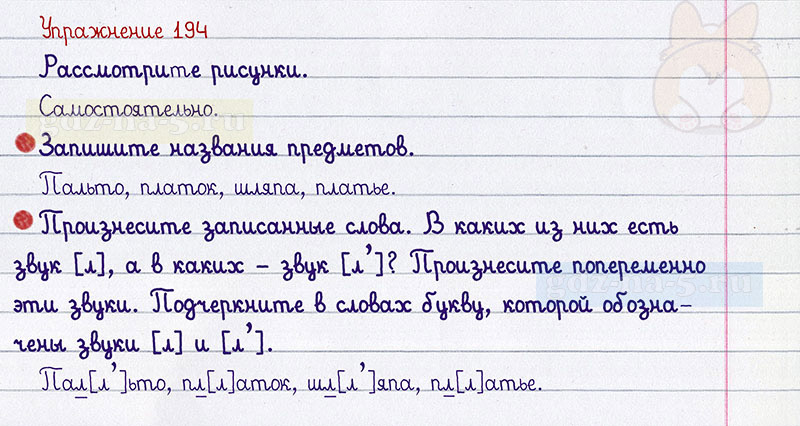 Упражнение 194
Рассмотрите рисунки.
Самостоятельно.
gdz-na-5.ru
Запишите названия предметов.
Пальто, платок, шляпа, платье.
Произнесите записанные слова. В каких из них есть
звук [л], а в каких – звук [л’]? Произнесите попеременно
gdz-na-5.ru
эти звуки. Подчеркните в словах букву, которой обозна–
чены звуки [л] и [л’].
Пал[л’]ьто, пл[л]аток, шл[л’]япа, пл[л]атье.